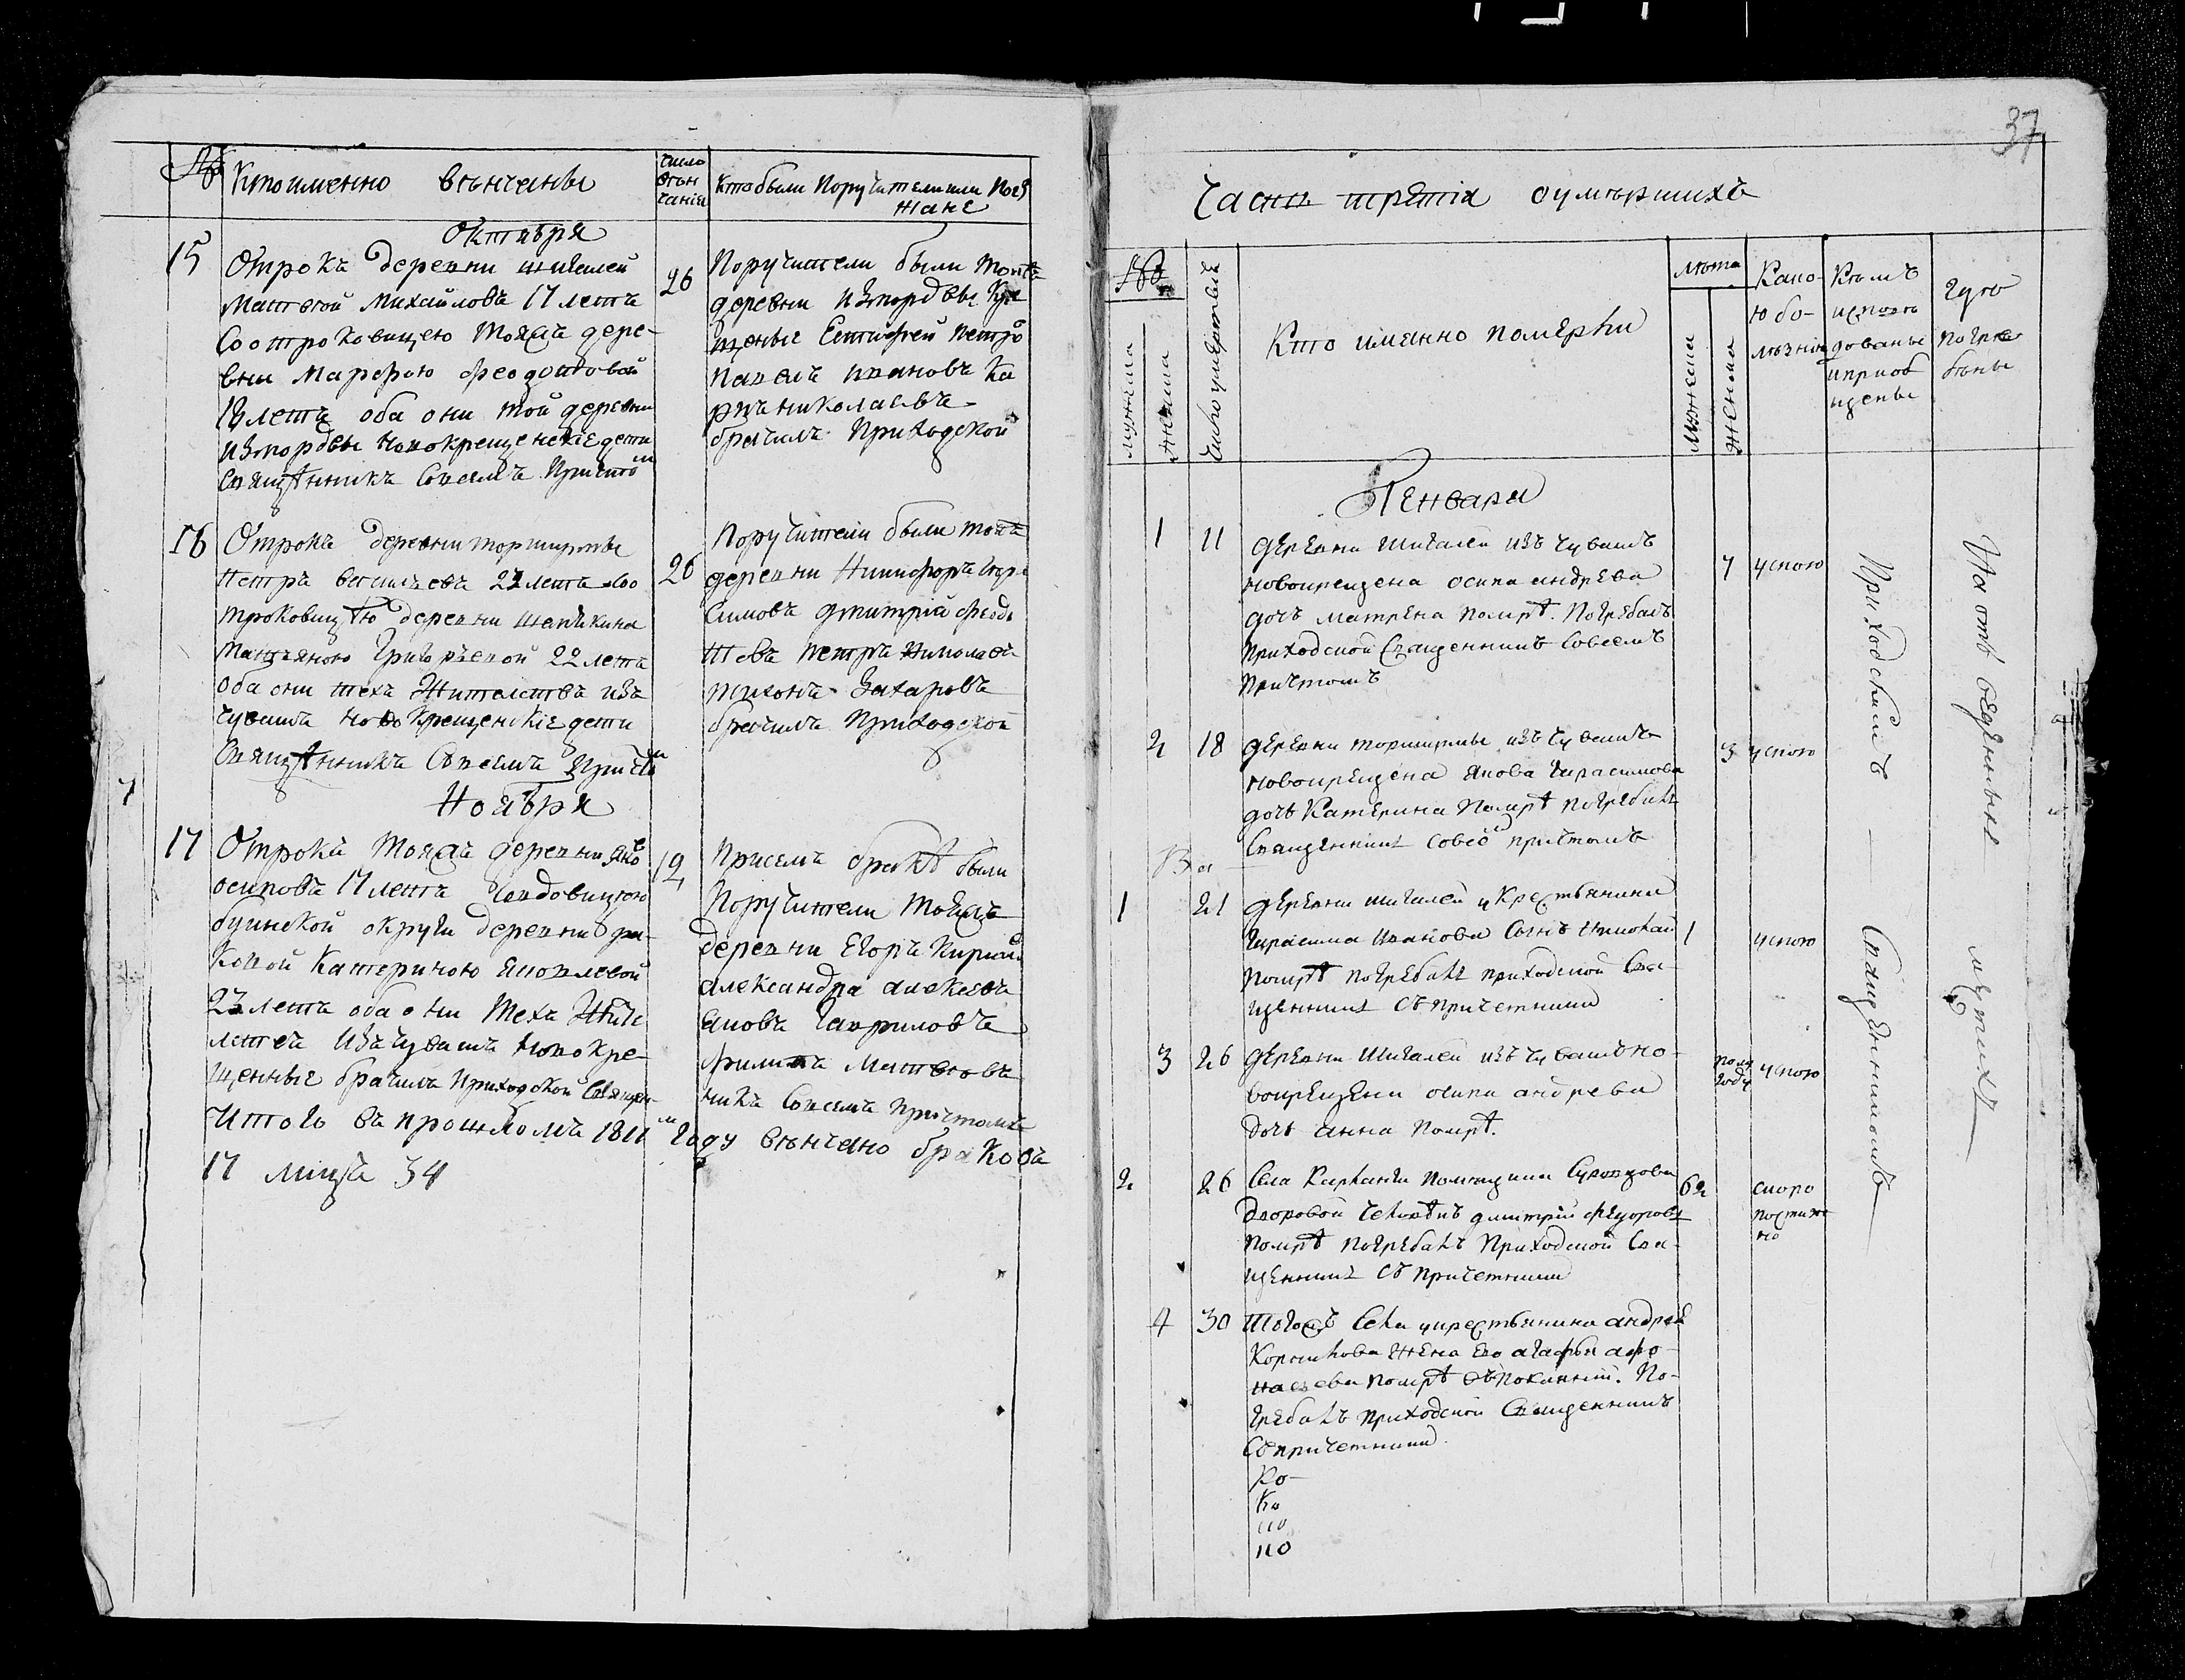 №
Кто именно вѣнчаны
число вѣнчанія
Кто были Поручители или Поѣзжане
Октября
15
Отрокъ деревни шигалей
Матвей михайловъ 17 летъ
Со отроковицею тояжъ дере-
вни марфою феодотовой
18 летъ оба они той деревни
изъ мордвы новокрещенскіе дети
Священникъ Совсемъ Причтом
26
Поручители были тояжъ
деревни изъ мордвы Кре
щеные Евтифей Петро
Павелъ Ивановъ Ка
рпъ николаевъ
брачилъ Приходской
16
Отрокъ деревни торширмы
Петръ васильевъ 22 летъ Соо
троковицею деревни шатикина
Татьяною Григорьевой 22 летъ
оба они техъ Жителствъ изъ
чувашъ новокрещенскіе дети
Священникъ Совсемъ Причтом
26
Поручители были тояжъ
деревни Никифоръ
Симовъ дмитрій феодо
Петръ Николаевъ
тихонъ Захаровъ
брачилъ Приходской
Ноября
17
Отрокъ тояжъ деревни Яко
осиповъ 17 летъ Совдовицею
буинской округи деревни ра-
ковой Катериною Яковлевой
23 летъ оба они техъ Жите
лстеъ изъ чувашъ новокре-
щенные брачилъ Приходской Священ
12
Присемъ бракѣ были
Поручители тояжъ
деревни Егоръ Кирилов
александра алексеевъ
Яковъ Гавриловъ
филипъ Матвеевъ
никъ Совсемъ причтомъ
Итого въ прошломъ 1811 м году вѣнчано браковъ
17 лицъ 34
37
Часть третія оумѣршихъ
№
мужеска
женска
Число умертвія
Кто именно помѣрли
лѣта
мужеска
женска
Како-
ю бо-
лѣзнію
Кѣмъ
испове
дованы
и приоб
щены
Гдѣ
погре
бены
Генваря
1 11
деревни шигалей изъ чувашъ
новокрещена осипа андрева
дочь матрена помре. Погребалъ
приходской Священникъ Совсемъ
Причтомъ
7 чспою
2 18
деревни торширмы изъ чувашъ
новокрещена якова Гарасимова
дочь Катерина Помре погребалъ
Священникъ Совсе причтомъ
3 чспою
1 21
деревни шигалей Крестьянина
Гарасима Иванова Сынъ Николай
Помре погребалъ приходской Свя-
щенникъ Съ причетники
1 чспою
3 26
деревни Шигалей изъ чувашъ но-
вокрещена осипа андрева
дочь анна помре.
пол
году
чспою
2 26
Села Карланги помещика
дворовой человѣкъ дмитрій федоровъ
помре погребалъ приходской Свя-
щенникъ Съ причетники
62
скоро
постиж
но
4 30
тогожъ Села крестьянина андрея
Корнилова Жена его агафья афо-
насьева помре съ покаяніи. По-
гребалъ приходской Священникъ
Съ причетники
Ко-
Ко
по
по
Приходскимъ — Священникомъ —
На отведенныхъ местахъ —